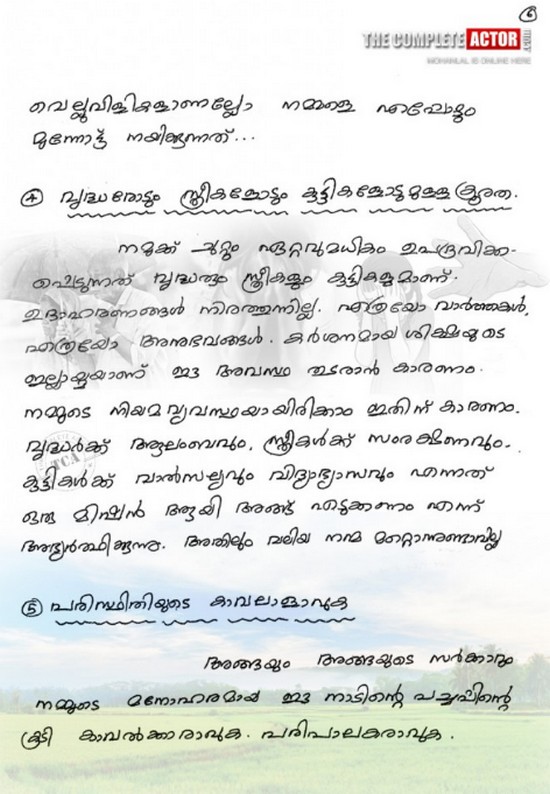 6
THE COMPLETE ACTOR
MOHANLAL IS ONLINE HERE
വെല്ലുവിളികളാണല്ലോ നമ്മളെ എപ്പോഴും
മുന്നോട്ട് നയിക്കുന്നത്...
④ വൃദ്ധരോടും സ്ത്രീകളോടും കുട്ടികളോടുമുള്ള ക്രൂരത.
നമുക്ക് ചുറ്റും ഏറ്റവുമധികം ഉപദ്രവിക്ക-
പ്പെടുന്നത് വൃദ്ധരും സ്ത്രീകളും കുട്ടികളുമാണ്.
ഉദാഹരണങ്ങൾ നിരത്തുന്നില്ല. എത്രയോ വാർത്തകൾ,
എത്രയോ അനുഭവങ്ങൾ. കർശനമായ ശിക്ഷയുടെ
ഇല്ലായ്മയാണ് ഈ അവസ്ഥ തുടരാൻ കാരണം.
നമ്മുടെ നിയമവ്യവസ്ഥയായിരിക്കാം ഇതിന് കാരണം.
വൃദ്ധർക്ക് ആലംബവും, സ്ത്രീകൾക്ക് സംരക്ഷണവും,
കുട്ടികൾക്ക് വാൽസല്യവും വിദ്യാഭ്യാസവും എന്നത്
ഒരു മിഷൻ ആയി അങ്ങ് എടുക്കണം എന്ന്
അഭ്യർത്ഥിക്കുന്നു. അതിലും വലിയ നന്മ മറ്റൊന്നുണ്ടാവില്ല
TCA
⑤ പരിസ്ഥിതിയുടെ കാവലാളാവുക
അങ്ങയും അങ്ങയുടെ സർക്കാരും
നമ്മുടെ മനോഹരമായ ഈ നാടിന്റെ പച്ചപ്പിന്റെ
കൂടി കാവൽക്കാരാവുക. പരിപാലകരാവുക.